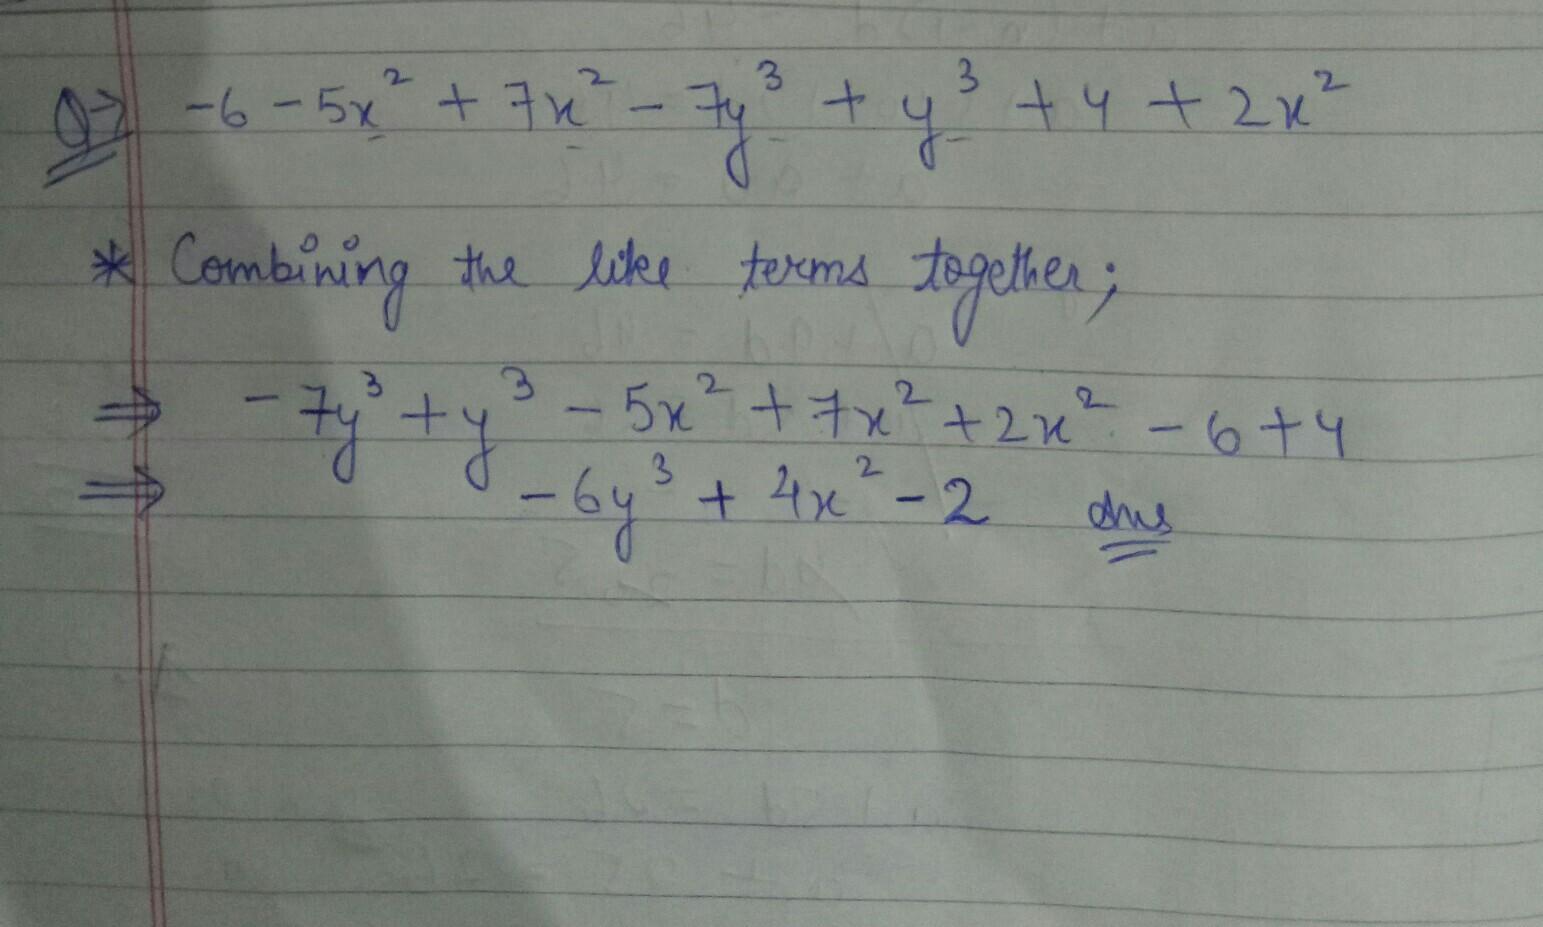 Q→ -6 - 5x² + 7x² - 7y³ + y³ + 4 + 2x²
* Combining the like terms together;
⇒ -7y³ + y³ - 5x² + 7x² + 2x² - 6 + 4
⇒ -6y³ + 4x² - 2 Ans